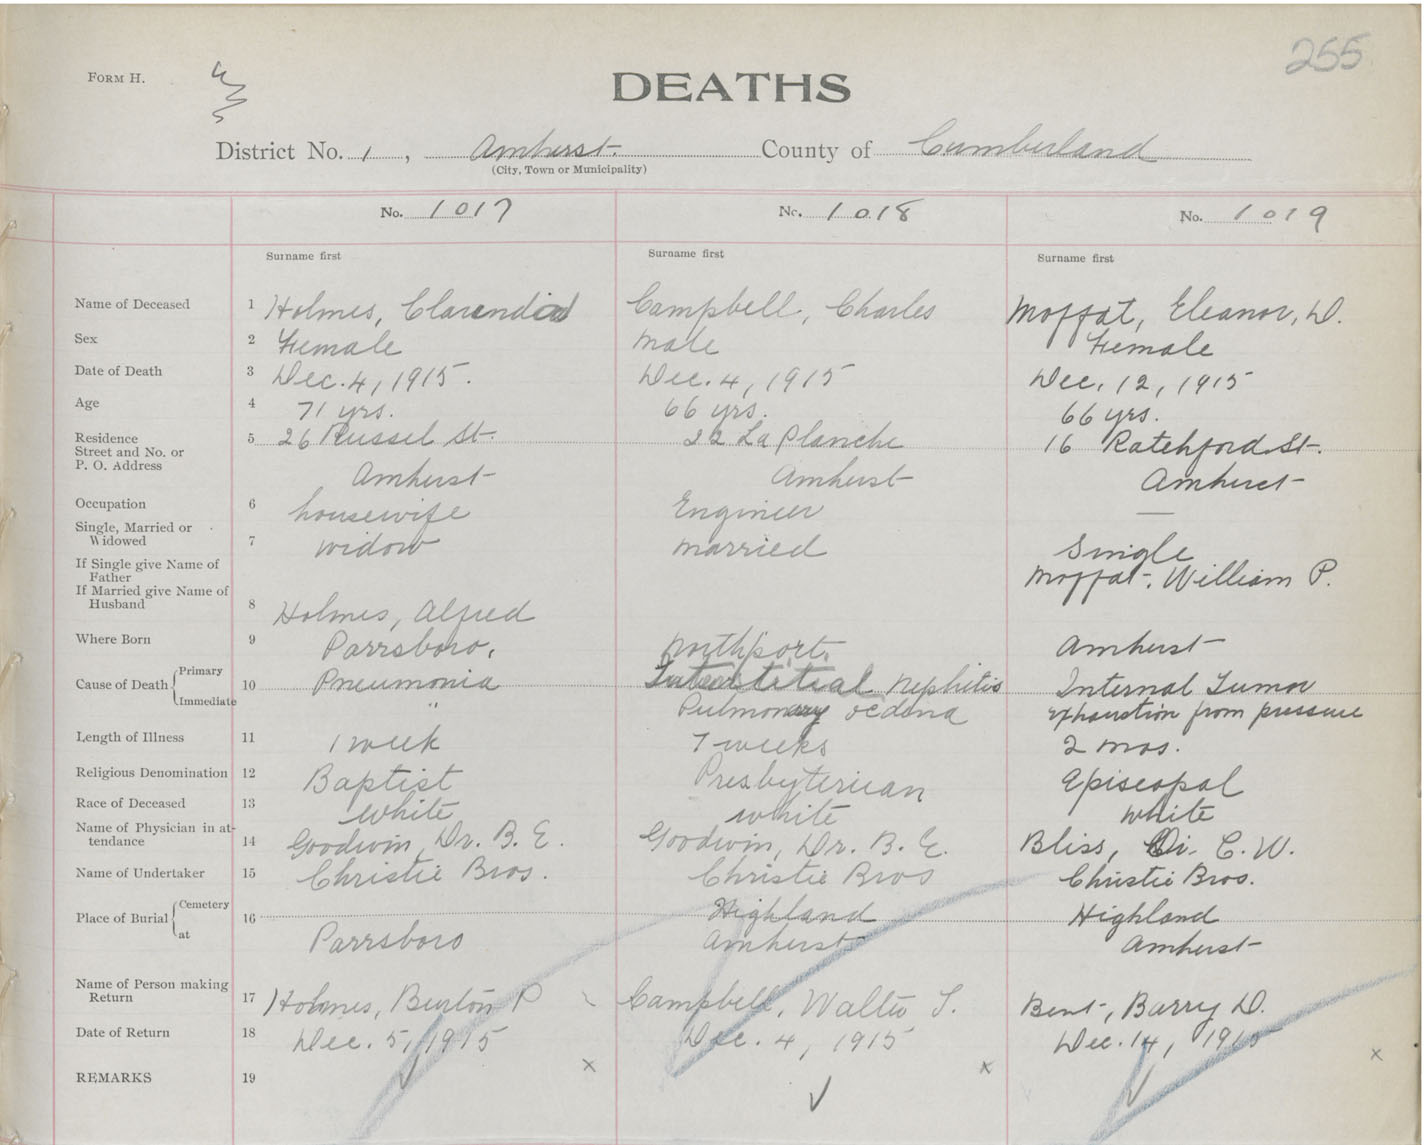 255
FORM H.
DEATHS
District No. 1, Amherst. County of Cumberland
(City, Town or Municipality)
No. 1017 No. 1018 No. 1019
Surname first Surname first Surname first
Name of Deceased 1 Holmes, Campbell, Charles Moffat, Eleanor, D.
Sex 2 Female male Female
Date of Death 3 Dec. 4, 1915. Dec. 4, 1915 Dec. 12, 1915
Age 4 71 yrs. 66 yrs. 66 yrs.
Residence 5 26 Russel St. 22 La Planche 16 Ratchford St.
Street and No. or
P. O. Address Amherst Amherst Amherst
Occupation 6 housewife Engineer —
Single, Married or
Widowed 7 widow married Single
If Single give Name of
Father Moffat, William P.
If Married give Name of
Husband 8 Holmes, Alfred
Where Born 9 Parrsboro, Northport. Amherst
Cause of Death { Primary 10 Pneumonia Interstitial Nephitis Internal Tumor
Immediate " Pulmonary oedema exhaustion from pressure
Length of Illness 11 1 week 7 weeks 2 mos.
Religious Denomination 12 Baptist Presbyterian Episcopal
Race of Deceased 13 white white white
Name of Physician in at-
tendance 14 Goodwin, Dr. B. E. Goodwin, Dr. B. E. Bliss, C. W.
Name of Undertaker 15 Christie Bros. Christie Bros Christie Bros.
Place of Burial { Cemetery 16 Highland Highland
at Parrsboro Amherst Amherst
Name of Person making
Return 17 Holmes, Burton P Campbell, Walter T. Bent, Barry D.
Date of Return 18 Dec. 5, 1915 Dec. 4, 1915 Dec. 14, 1915
REMARKS 19 x x x